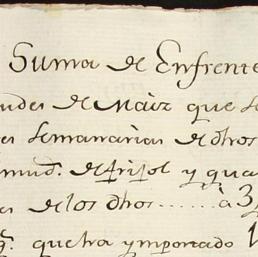 Suma de Enfrente
udes de Maiz que se
es semanarias de dhos
mud.s de frisol y qua
es de los dhos ...... à 3
q.e queha ymportado 1